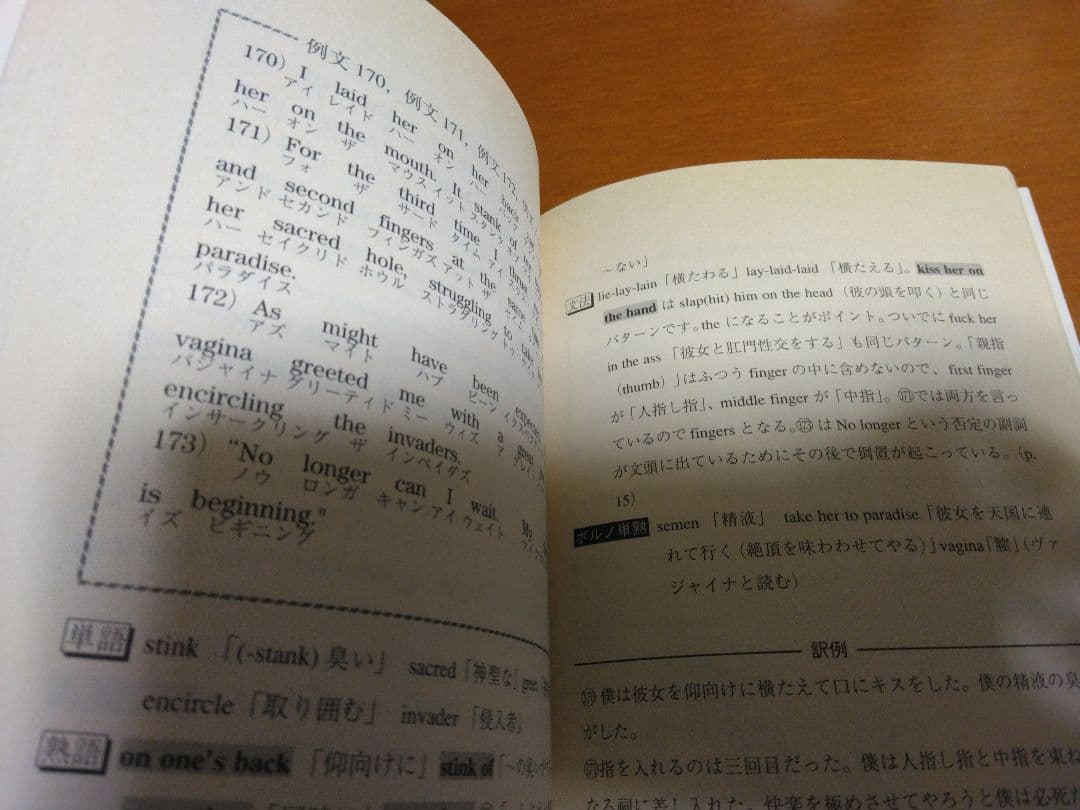 例文 170, 例文 171, 例文 172,
170) I laid her on her back
アイ レイド ハー オン ハー バック
her on the mouth. It stank of
ハー オン ザ マウス イット スタンク オブ
171) For the third time I
フォ ザ サード タイム アイ
and second fingers at the same
アンド セカンド フィンガズ アット ザ セイム
her sacred hole, struggling to
ハー セイクリド ホウル ストラグリング トゥ
paradise.
パラダイス
172) As might have been
アズ マイト ハブ ビーン
vagina greeted me with a great
バジャイナ グリーティド ミー ウィズ ア
encircling the invaders.
インサークリング ザ インベイダズ
173) “No longer can I wait. My
ノウ ロンガ キャン アイ ウェイト マイ
is beginning.”
イズ ビギニング
単語 stink 「(-stank) 臭い」 sacred「神聖な」
encircle「取り囲む」 invader「侵入者」
熟語 on one's back 「仰向けに」 stink of
～ない」
文法 lie-lay-lain「横たわる」lay-laid-laid「横たえる」。kiss her on
the hand は slap(hit) him on the head（彼の頭を叩く）と同じ
パターンです。the になることがポイント。ついでに fuck her
in the ass「彼女と肛門性交をする」も同じパターン。「親指
（thumb）」はふつう finger の中に含めないので、first finger
が「人指し指」、middle finger が「中指」。171では両方を言っ
ているので fingers となる。173は No longer という否定の副詞
が文頭に出ているためにその後で倒置が起こっている。（p.
15）
ポルノ単熟 semen「精液」 take her to paradise「彼女を天国に連
れて行く（絶頂を味わわせてやる）」vagina「膣」（ヴァ
ジャイナと読む）
訳例
170僕は彼女を仰向けに横たえて口にキスをした。僕の精液の臭
がした。
171指を入れるのは三回目だった。僕は人指し指と中指を束ね
なる祠に差し入れた。快楽を極めさせてやろうと僕は必死だ